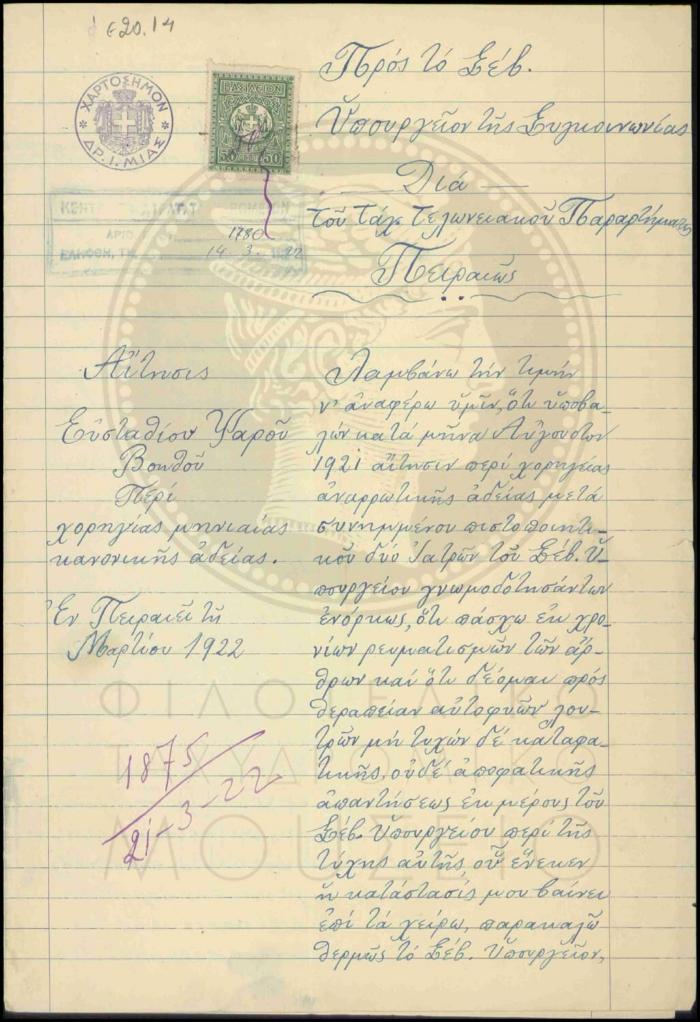 620.14
ΧΑΡΤΟΣΗΜΟΝ
ΔΡ. Ι. ΜΙΑΣ
ΒΑΣΙΛΕΙΟΝ
50 50
1780
14.3.1922
Πρός τό Σέβ.
Ὑπουργεῖον τῆς Συγκοινωνίας
Διά
τοῦ Ταχ. Τελωνειακοῦ Παραρτήματος
Πειραιῶς
Αἴτησις
Εὐσταθίου Ψαροῦ
Βοηθοῦ
Περί
χορηγείας μηνιαίας
κανονικῆς ἀδείας.
Ἐν Πειραιεῖ τῇ
Μαρτίου 1922
1875
21-3-22
Λαμβάνω τήν τιμήν
ν' ἀναφέρω ὑμῖν, ὅτι ὑποβα-
λών κατά μῆνα Αὔγουστον
1921 αἴτησιν περί χορηγείας
ἀναρρωτικῆς ἀδείας μετά
συνημμένου πιστοποιητι-
κοῦ δύο Ἰατρῶν τοῦ Σέβ. Ὑ-
πουργείου γνωμοδοτησάντων
ἐνόρκως, ὅτι πάσχω ἐκ χρο-
νίων ρευματισμῶν τῶν ἄρ-
θρων καί ὅτι δέομαι πρός
θεραπείαν αὐτοφυῶν λου-
τρῶν μή τυχών δέ καταφα-
τικῆς, οὐδέ ἀποφατικῆς
ἀπαντήσεως ἐκ μέρους τοῦ
Σέβ. Ὑπουργείου περί τῆς
τύχης αὐτῆς, οὗ ἕνεκεν
ἡ κατάστασίς μου βαίνει
ἐπί τά χείρω, παρακαλῶ
θερμῶς τό Σέβ. Ὑπουργεῖον,
ΦΙΛΟΤΕΛΙΚΟ
ΤΑΧΥΔΡΟΜΙΚΟ
ΜΟΥΣΕΙΟ